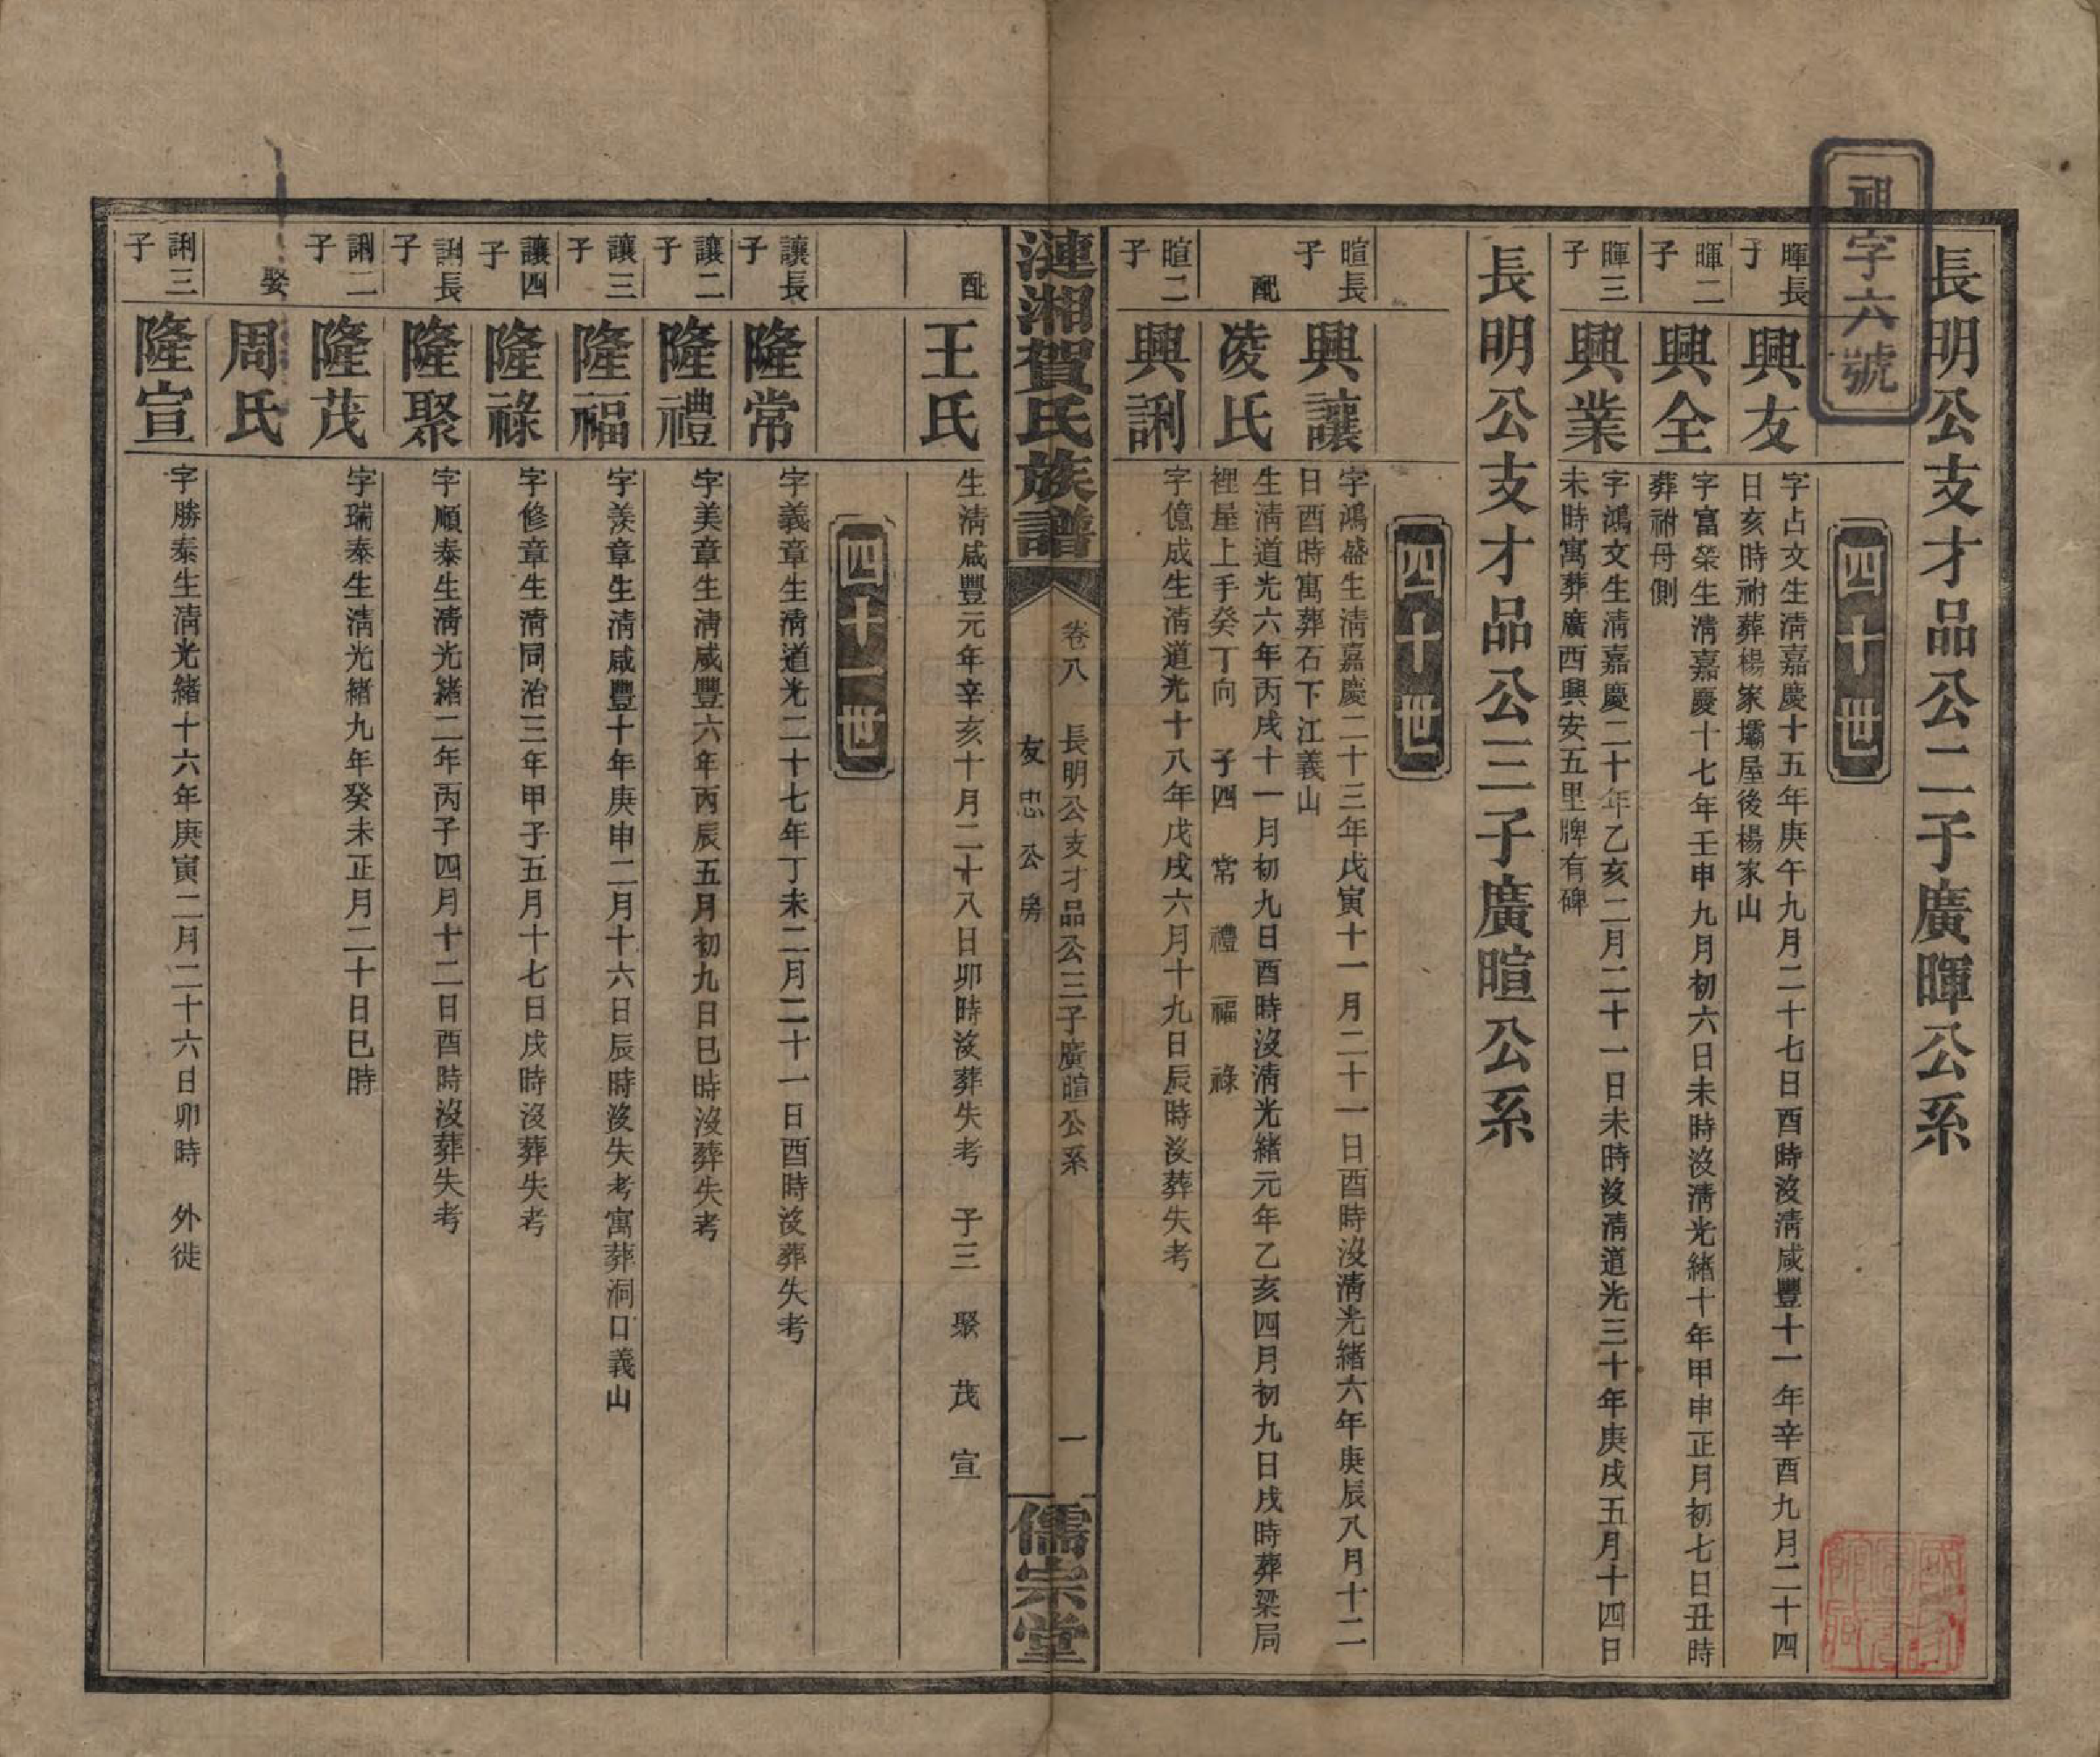 祖字六號
長明公支才品公二子廣暉公系
四十世
暉長子
興友
字占文生淸嘉慶十五年庚午九月二十七日酉時沒淸咸豐十一年辛酉九月二十四
日亥時祔葬楊家壩屋後楊家山
暉二子
興全
字富榮生淸嘉慶十七年壬申九月初六日未時沒淸光緖十年甲申正月初七日丑時
葬祔母側
暉三子
興業
字鴻文生淸嘉慶二十年乙亥二月二十一日未時沒淸道光三十年庚戌五月十四日
未時寓葬廣西興安五里牌有碑
長明公支才品公三子廣暄公系
四十世
暄長子
興讓
字鴻盛生淸嘉慶二十三年戊寅十一月二十一日酉時沒淸光緖六年庚辰八月十二
日酉時寓葬石下江義山
配
凌氏
生淸道光六年丙戌十一月初九日酉時沒淸光緖元年乙亥四月初九日戌時葬梁局
裡屋上手癸丁向 子四 常 禮 福 祿
暄二子
興誗
字億成生淸道光十八年戊戌六月十九日辰時沒葬失考
漣湘賀氏族譜
卷八 長明公支才品公三子廣暄公系 一
友忠公房
儒宗堂
配
王氏
生淸咸豐元年辛亥十月二十八日卯時沒葬失考 子三 聚 茂 宣
四十一世
讓長子
隆常
字義章生淸道光二十七年丁未二月二十一日酉時沒葬失考
讓二子
隆禮
字美章生淸咸豐六年丙辰五月初九日巳時沒葬失考
讓三子
隆福
字羨章生淸咸豐十年庚申二月十六日辰時沒失考寓葬洞口義山
讓四子
隆祿
字修章生淸同治三年甲子五月十七日戌時沒葬失考
誗長子
隆聚
字順泰生淸光緖二年丙子四月十二日酉時沒葬失考
誗二子
隆茂
字瑞泰生淸光緖九年癸未正月二十日巳時
娶
周氏
誗三子
隆宣
字勝泰生淸光緖十六年庚寅二月二十六日卯時 外徙